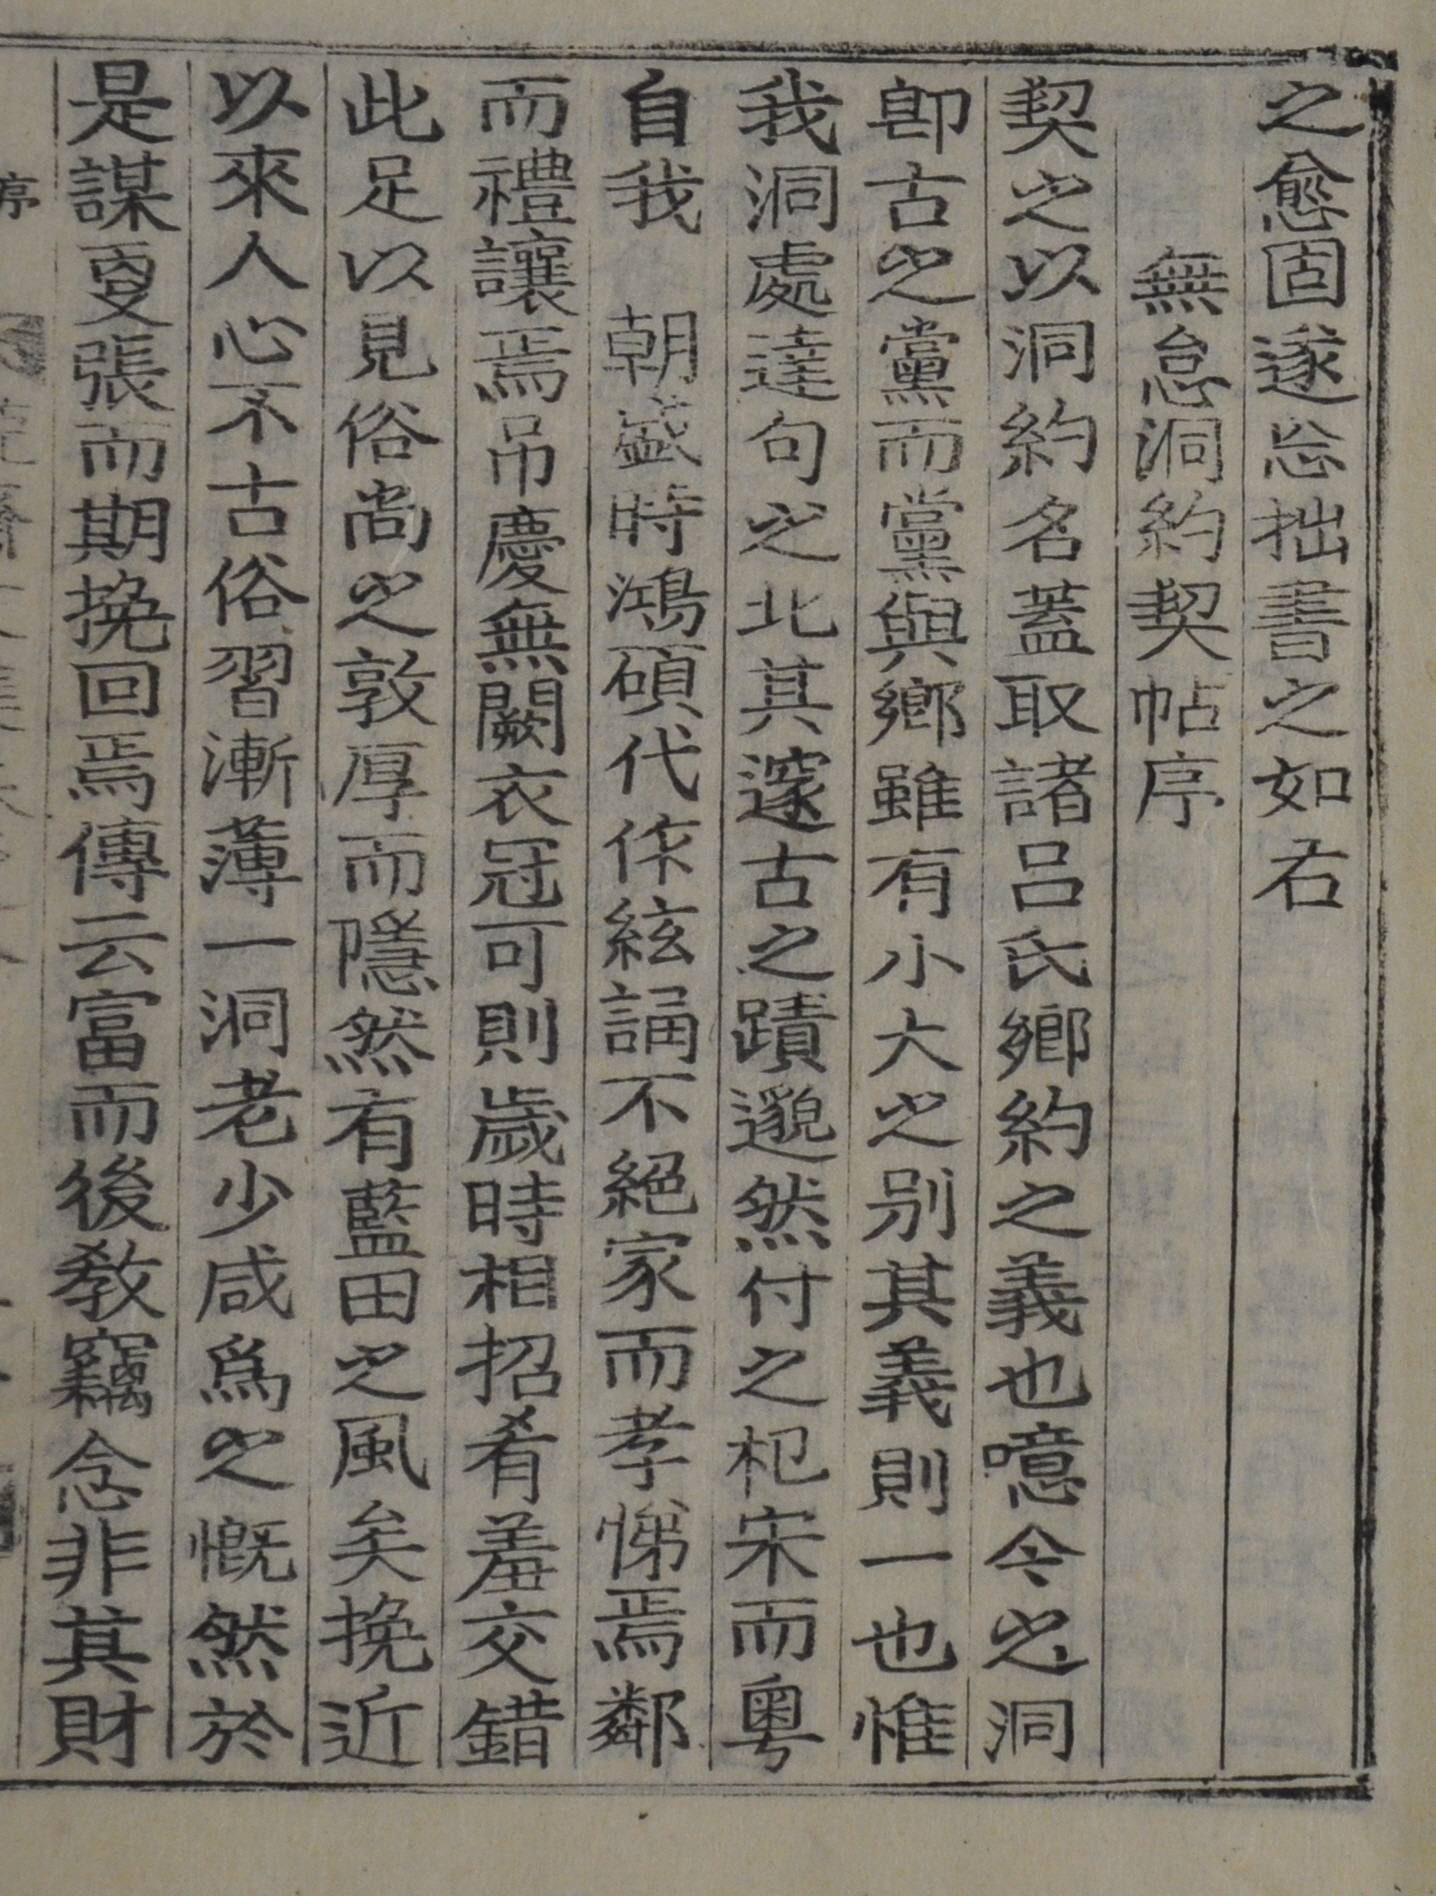 之愈固遂忘拙書之如右
無怠洞約契帖序
契之以洞約名蓋取諸呂氏鄕約之義也噫今之洞
卽古之黨而黨與鄕雖有小大之別其義則一也惟
我洞處達句之北其邃古之蹟邈然付之杞宋而粤
自我 朝盛時鴻碩代作絃誦不絕家而孝悌焉鄰
而禮讓焉吊慶無闕衣冠可則歲時相招肴羞交錯
此足以見俗尙之敦厚而隱然有藍田之風矣挽近
以來人心不古俗習漸薄一洞老少咸爲之慨然於
是謀更張而期挽回焉傳云富而後敎竊念非其財
序